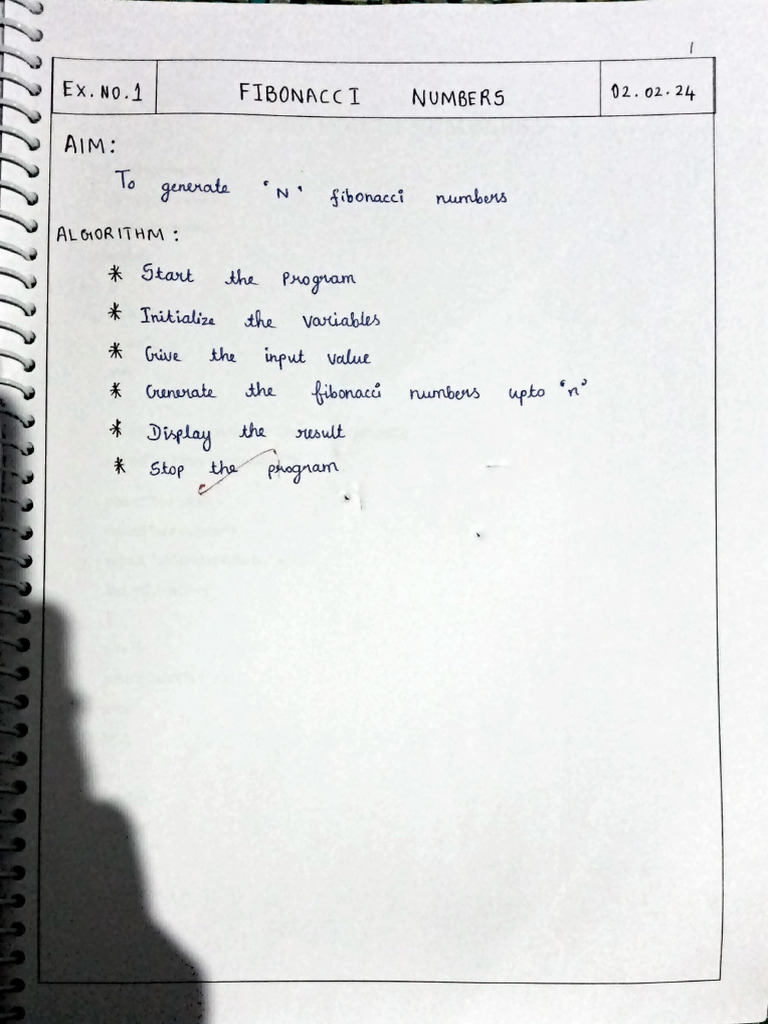 1
EX.NO.1 FIBONACCI NUMBERS 02.02.24
AIM:
To generate 'N' fibonacci numbers
ALGORITHM:
* Start the program
* Initialize the variables
* Give the input value
* Generate the fibonacci numbers upto 'n'
* Display the result
* Stop the program